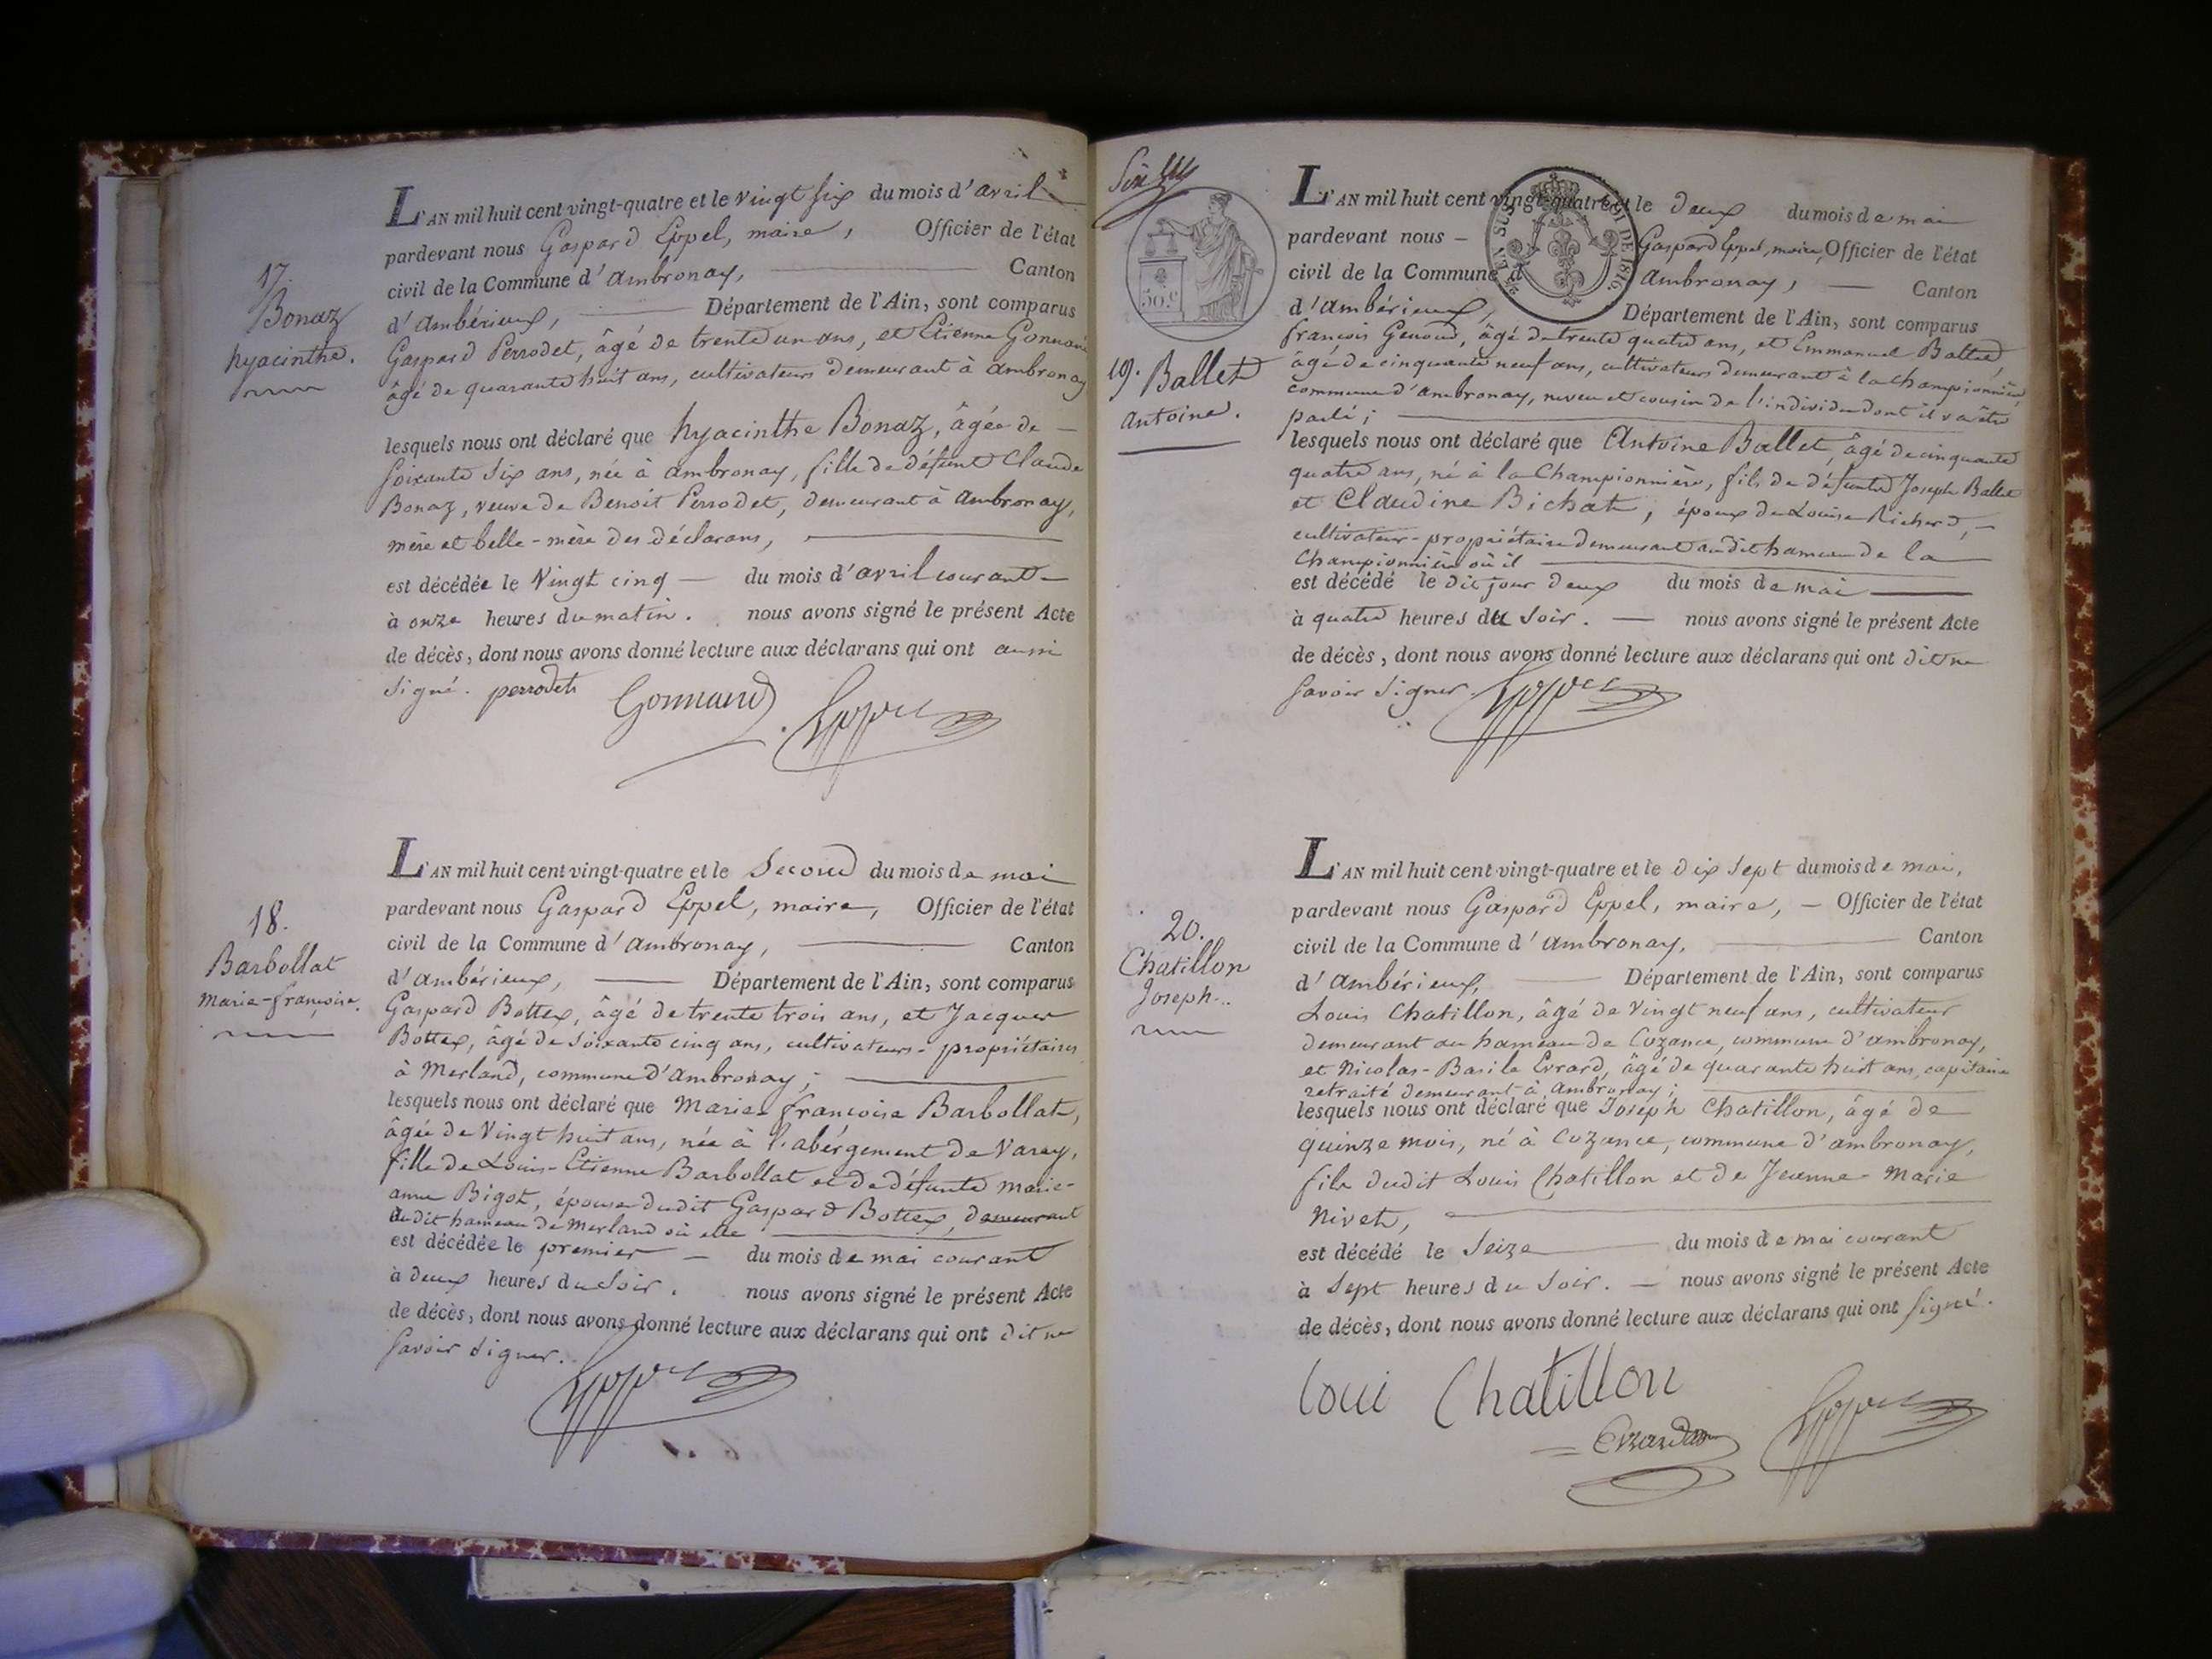 17.
Bonaz
hyacinthe.
L'AN mil huit cent vingt-quatre et le vingt six du mois d'avril
pardevant nous Gaspard Eppel, maire, Officier de l'état
civil de la Commune d'ambronay, Canton
d'ambérieux, Département de l'Ain, sont comparus
Gaspard Perrodet, âgé de trente un ans, et Etienne Gonnand
âgé de quarante huit ans, cultivateurs demeurant à ambronay
lesquels nous ont déclaré que hyacinthe Bonaz, âgée de
soixante six ans, née à ambronay, fille de défunt Claude
Bonaz, veuve de Benoit Perrodet, demeurant à ambronay,
mère et belle-mère des déclarans,
est décédée le vingt cinq du mois d'avril courant
à onze heures du matin. nous avons signé le présent Acte
de décès, dont nous avons donné lecture aux déclarans qui ont aussi
signé. perrodet Gonnand Eppel
18.
Barbollat
marie-françoise.
L'AN mil huit cent vingt-quatre et le second du mois de mai
pardevant nous Gaspard Eppel, maire, Officier de l'état
civil de la Commune d'ambronay, Canton
d'ambérieux, Département de l'Ain, sont comparus
Gaspard Bottex, âgé de trente trois ans, et Jacques
Bottex, âgé de soixante cinq ans, cultivateurs-propriétaires
à Merland, commune d'ambronay;
lesquels nous ont déclaré que Marie françoise Barbollat,
âgée de vingt huit ans, née à l'abergement de Varey,
fille de Louis-Etienne Barbollat et de défunte marie-
anne Bigot, épouse dudit Gaspard Bottex, demeurant
audit hameau de Merland où elle
est décédée le premier du mois de mai courant
à deux heures du soir. nous avons signé le présent Acte
de décès, dont nous avons donné lecture aux déclarans qui ont dit ne
savoir signer. Eppel
50.c
19. Ballet
antoine.
L'AN mil huit cent vingt-quatre et le deux du mois de mai
pardevant nous Gaspard Eppel, maire, Officier de l'état
civil de la Commune d'ambronay, Canton
d'ambérieux, Département de l'Ain, sont comparus
EN SUS LOI DE 1816.
françois Genoud, âgé de trente quatre ans, et Emmanuel Ballet
âgé de cinquante neuf ans, cultivateurs demeurant à la championnière
commune d'ambronay, neveu et cousin de l'individu dont il va être
parlé;
lesquels nous ont déclaré que Antoine Ballet, âgé de cinquante
quatre ans, né à la Championnière, fils de défunts Joseph Ballet
et Claudine Bichat, époux de Louise Richerd,
cultivateur-propriétaire demeurant audit hameau de la
Championnière où il
est décédé le dit jour deux du mois de mai
à quatre heures du soir. nous avons signé le présent Acte
de décès, dont nous avons donné lecture aux déclarans qui ont dit ne
savoir signer. Eppel
20.
Chatillon
Joseph.
L'AN mil huit cent vingt-quatre et le dix sept du mois de mai,
pardevant nous Gaspard Eppel, maire, Officier de l'état
civil de la Commune d'ambronay, Canton
d'ambérieux, Département de l'Ain, sont comparus
Louis Chatillon, âgé de vingt neuf ans, cultivateur
demeurant au hameau de Cozance, commune d'ambronay,
et Nicolas-Basile Evrard, âgé de quarante huit ans, capitaine
retraité demeurant à ambronay;
lesquels nous ont déclaré que Joseph Chatillon, âgé de
quinze mois, né à Cozance, commune d'ambronay,
fils dudit Louis Chatillon et de Jeanne-Marie
Nivet,
est décédé le seize du mois de mai courant
à sept heures du soir. nous avons signé le présent Acte
de décès, dont nous avons donné lecture aux déclarans qui ont signé.
loui Chatillon
Evrard Eppel